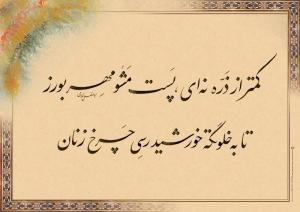 کمتر از ذرّه نه‌ای، پَست مَشو مِهر بورز
تا به خلوتگه خورشید رسی چرخ زنان